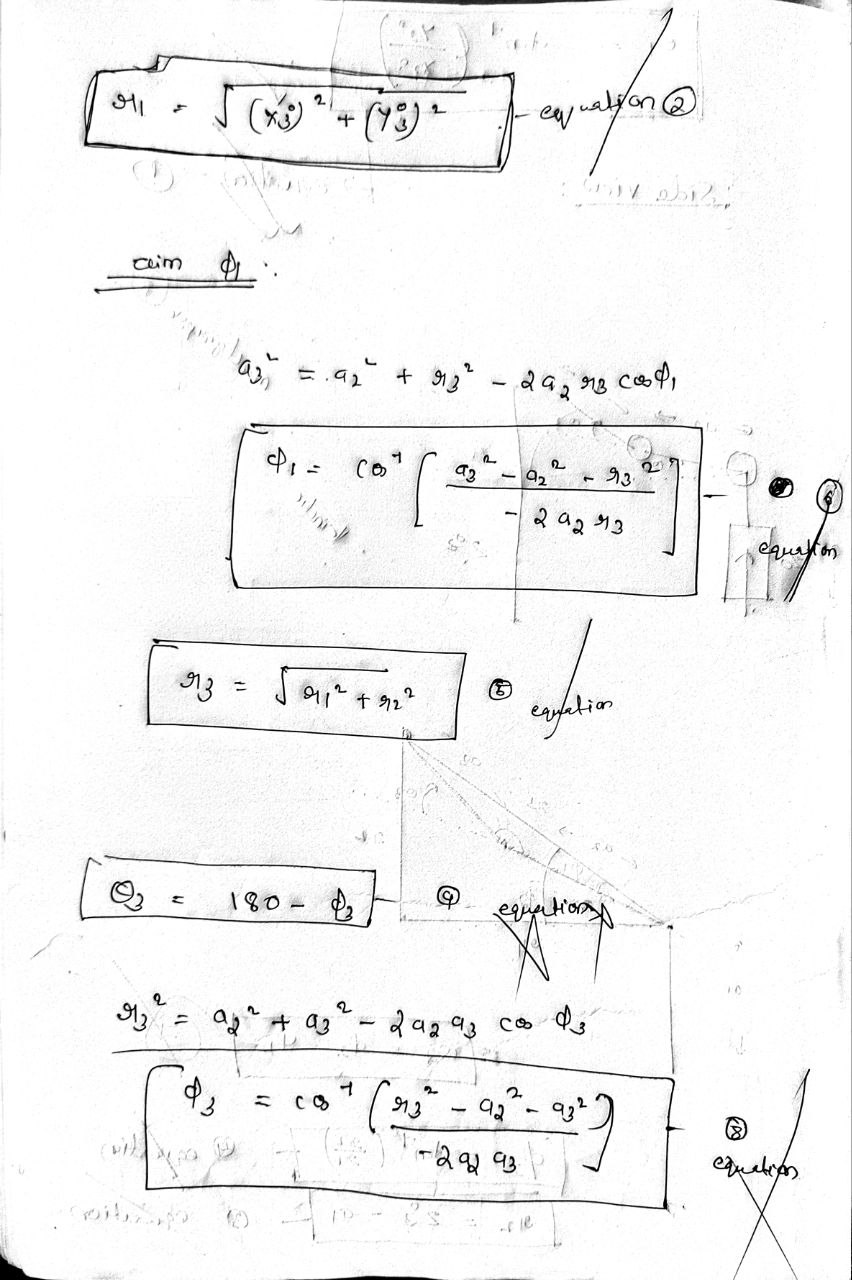 r1 = √((x₃⁰)² + (y₃⁰)²) - equation ②
aim ϕ1 :
a₃² = a₂² + r₃² - 2 a₂ r₃ cosϕ₁
ϕ₁ = cos⁻¹ [ (a₃² - a₂² - r₃²) / (- 2 a₂ r₃) ] - ⑥
equation
r₃ = √(r₁² + r₂²) ⑤ equation
θ₃ = 180 - ϕ₃ - ⑨ equation
r₃² = a₂² + a₃² - 2 a₂ a₃ cos ϕ₃
ϕ₃ = cos⁻¹ ( (r₃² - a₂² - a₃²) / (-2 a₂ a₃) ) - ⑧
equation